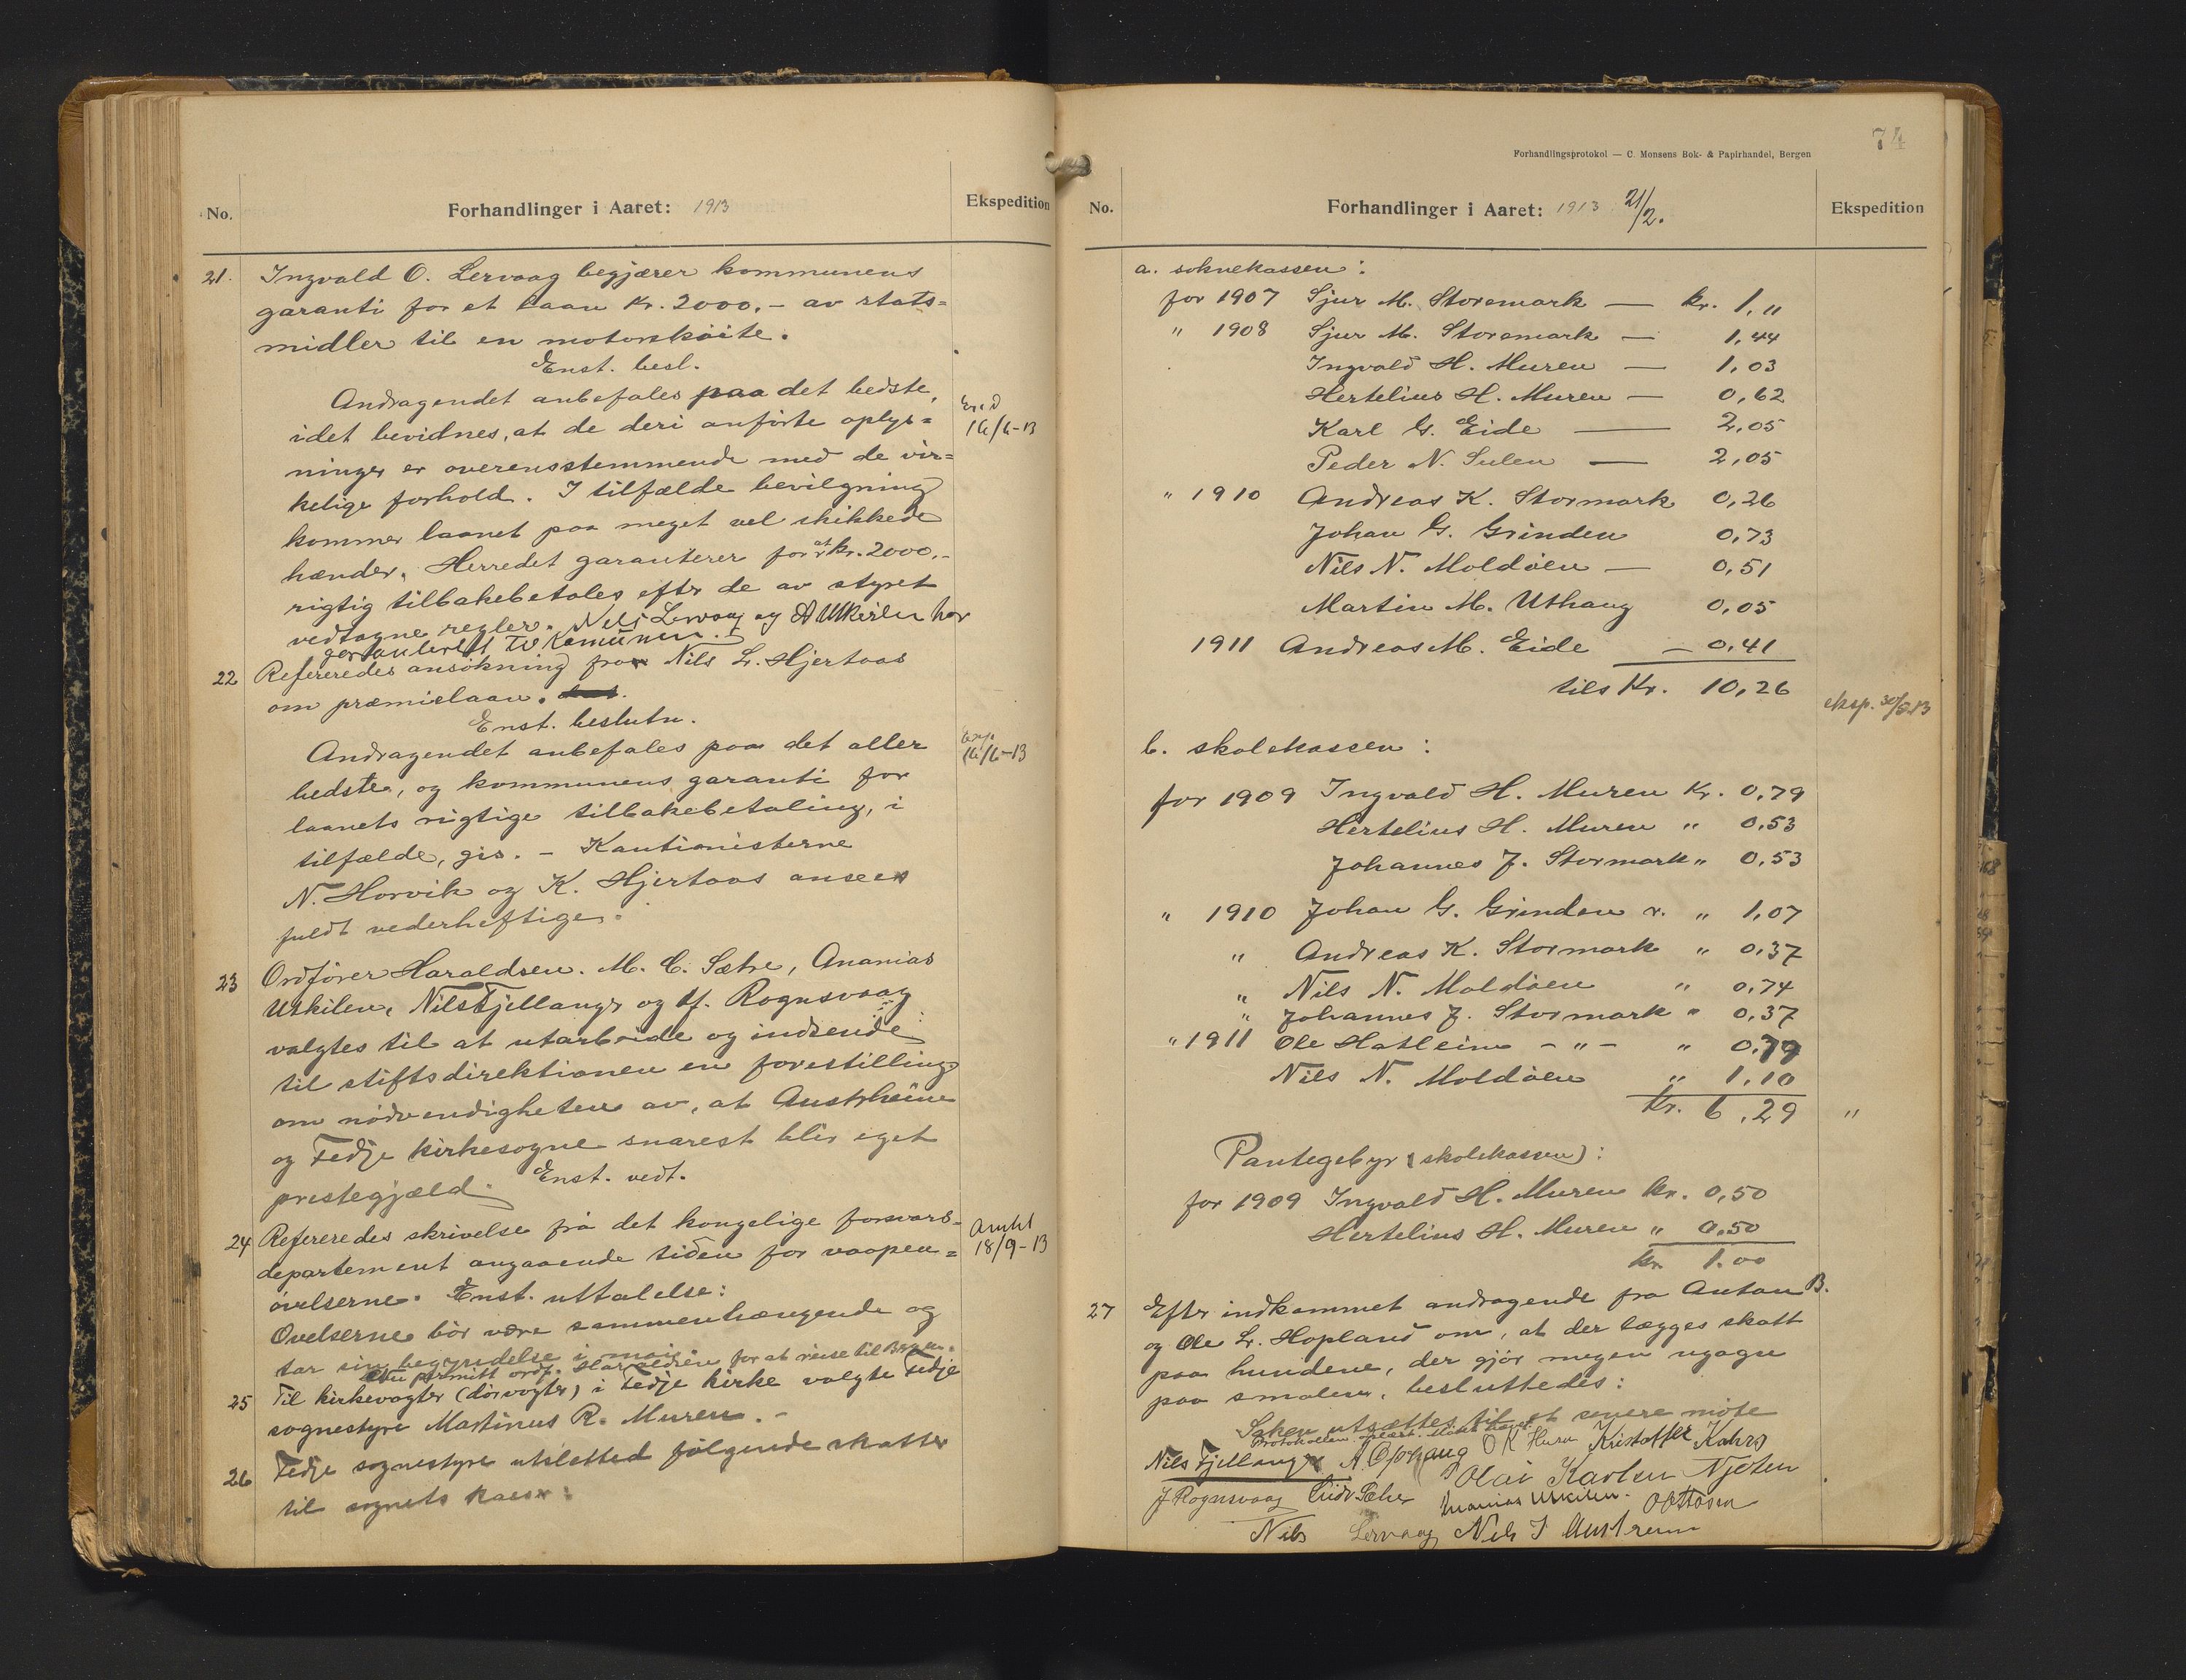 No.
Forhandlinger i Aaret: 1913
Ekspedition
21. Ingvald O. Lervaag begjærer kommunens
garanti for et laan kr. 2000.- av stats=
midler til en motorskøite.
Enst. besl.
Andragendet anbefales paa det bedste,
idet bevidnes, at de deri anførte oplys=
16/6-13
ninger er overensstemmende med de vir=
kelige forhold. I tilfælde bevilgning
kommer laanet paa meget vel skikkede
hænder. Herredet garanterer for at kr. 2000.-
rigtig tilbakebetales efter de av styret
vedtagne regler. Nils Lervaag og A Utkilen har
garanteret til Komunen.
22 Refereredes ansøkning fra Nils L. Hjertaas
om præmielaan.
Enst. beslutn.
Andragendet anbefales paa det aller
exp. 16/6-13
bedste, og kommunens garanti for
laanets rigtige tilbakebetaling, i
tilfælde, gis. - Kautionisterne
N. Horvik og K. Hjertaas ansees
fuldt vederheftige.
23 Ordfører Haraldsen. M. C. Sætre, Ananias
Utkilen, Nils Fjellanger og J. Rognsvaag
valgtes til at utarbeide og indsende
til stiftsdirektionen en forestilling
om nødvendigheten av, at Austrheim
og Fedje kirkesogne snarest blir eget
prestegjæld. Enst. vedt.
24 Refereredes skrivelse frå det kongelige forsvars-
departement angaaende tiden for vaapen=
18/9-13
øvelserne. Enst. uttalelse:
Øvelserne bør være sammenhængende og
tar sin begyndelse i mai.
permitt ordf. Haraldsen for at reise til Bergen.
25 Til kirkevagter (dørvogter) i Fedje kirke valgte Fedje
sognestyre Martinus R. Muren. -
26 Fedje sognestyre utslettet følgende skatter
til sognets kasser:
74
Forhandlingsprotokol — C. Monsens Bok- & Papirhandel, Bergen
No.
Forhandlinger i Aaret: 1913 21/2.
Ekspedition
a. soknekassen:
for 1907 Sjur M. Storemark — kr. 1,"
" 1908 Sjur M. Storemark — 1,44
Ingvald H. Muren — 1,03
Hertelius H. Muren — 0,62
Karl G. Eide — 2,05
Peder N. Sulen — 2,05
" 1910 Andreas K. Stormark 0,26
Johan G. Grinden 0,73
Nils N. Moldøen — 0,51
Martin M. Uthaug 0,05
1911 Andreas M. Eide — 0,41
tils Kr. 10,26
eksp. 30/8 13
b. skolekassen:
for 1909 Ingvald H. Muren Kr. 0,79
Hertelius H. Muren " 0,53
Johannes J. Stormark " 0,53
" 1910 Johan G. Grinden v. " 1,07
" Andreas K. Stormark " 0,37
" Nils N. Moldøen " 0,74
" Johannes J. Stormark " 0,37
" 1911 Ole Hatleim - " - " 0,79
Nils N. Moldøen " 1,10
Kr. 6,29 "
Pantegebyr (skolekassen):
for 1909 Ingvald H. Muren kr. 0,50
Hertelius H. Muren " 0,50
kr. 1.00
27 Efter indkommet andragende fra Anton B.
og Ole L. Hopland om, at der lægges skatt
paa hundene, der gjør megen ugagn
paa smalen, besluttedes:
Saken utsættes til et senere møte
Protokollen oplæst. Møtet hævet
Nils Fjellanger A Ophaug O K Kristoffer Kahrs
J Rognsvaag Olai Karlsen Njøten
Ananias Utkilen. O Ottosen
Nils Lervaag Nils J Austreim